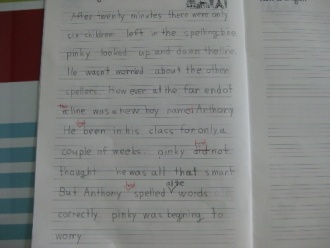 After twenty minutes there were only
six children left in the spelling bee
pinky looked up and down the line.
He wasn't worried about the other
spellers. However at the far end of
the line was a new boy named Anthony
He had been in his class for only a
couple of weeks. pinky had not
Thought he was all that smart
But Anthony had spelled all the words
correctly. pinky was begning to
worry